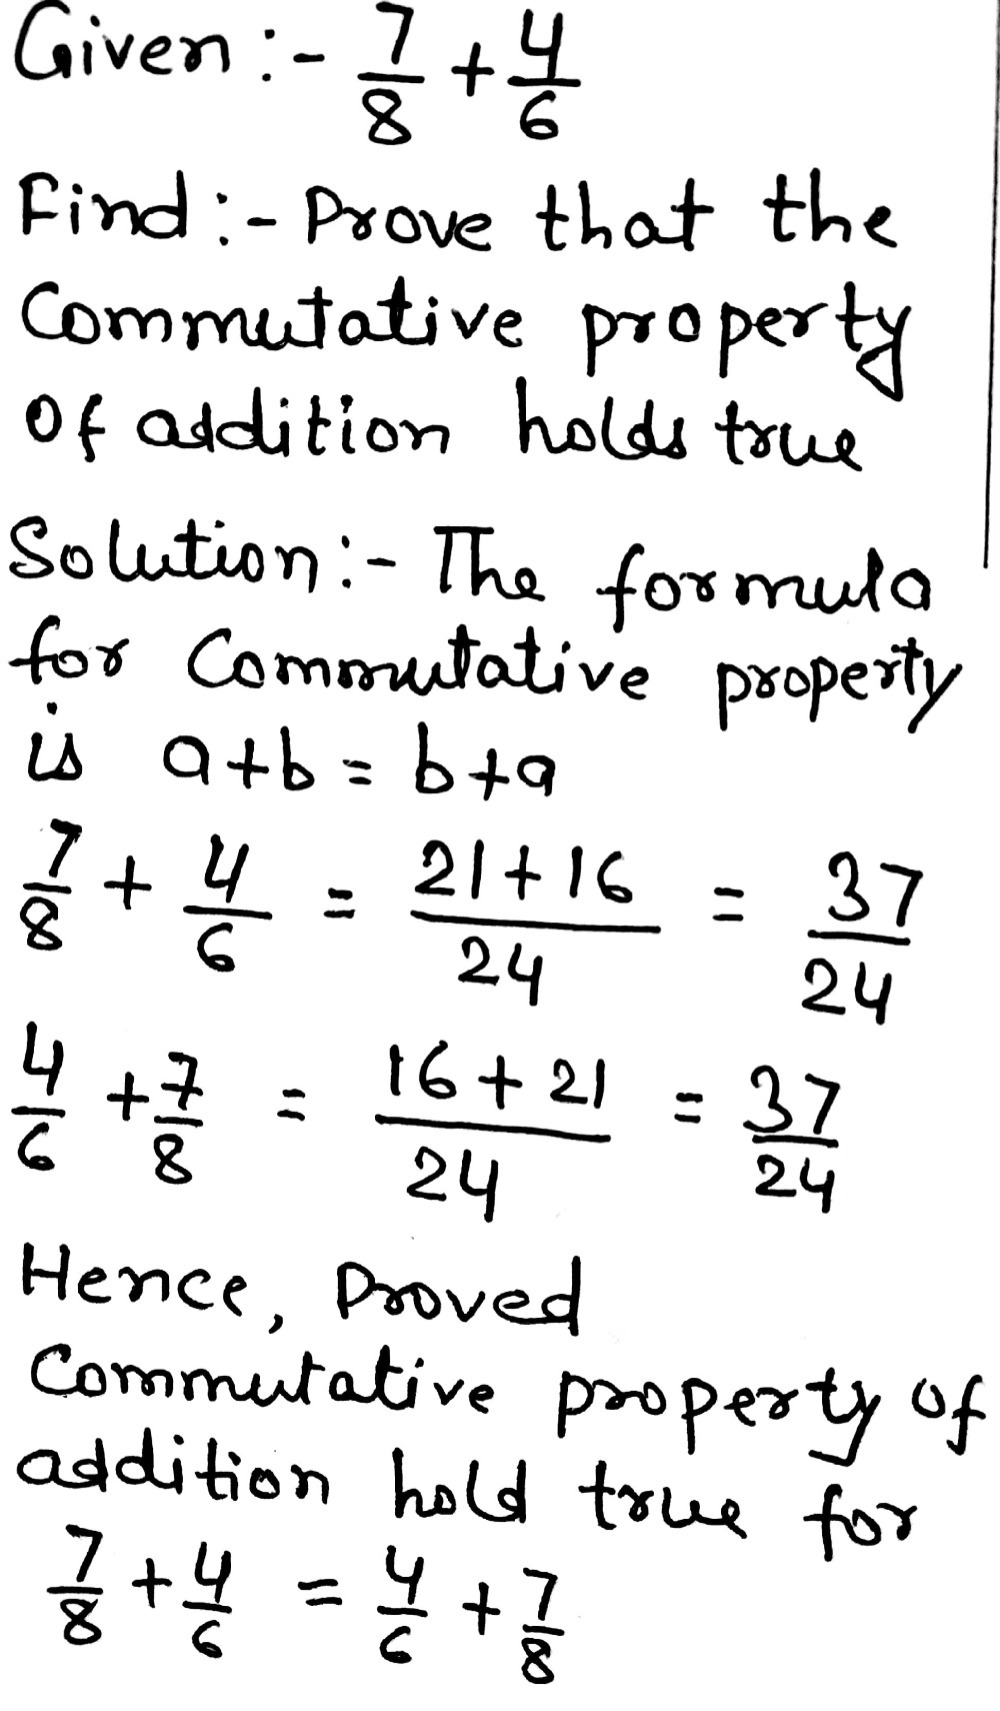 Given :- 7/8 + 4/6
Find :- Prove that the
Commutative property
Of addition holds true
Solution :- The formula
for Commutative property
is a+b = b+a
7/8 + 4/6 = 21+16/24 = 37/24
4/6 + 7/8 = 16+21/24 = 37/24
Hence, Proved
Commutative property of
addition hold true for
7/8 + 4/6 = 4/6 + 7/8